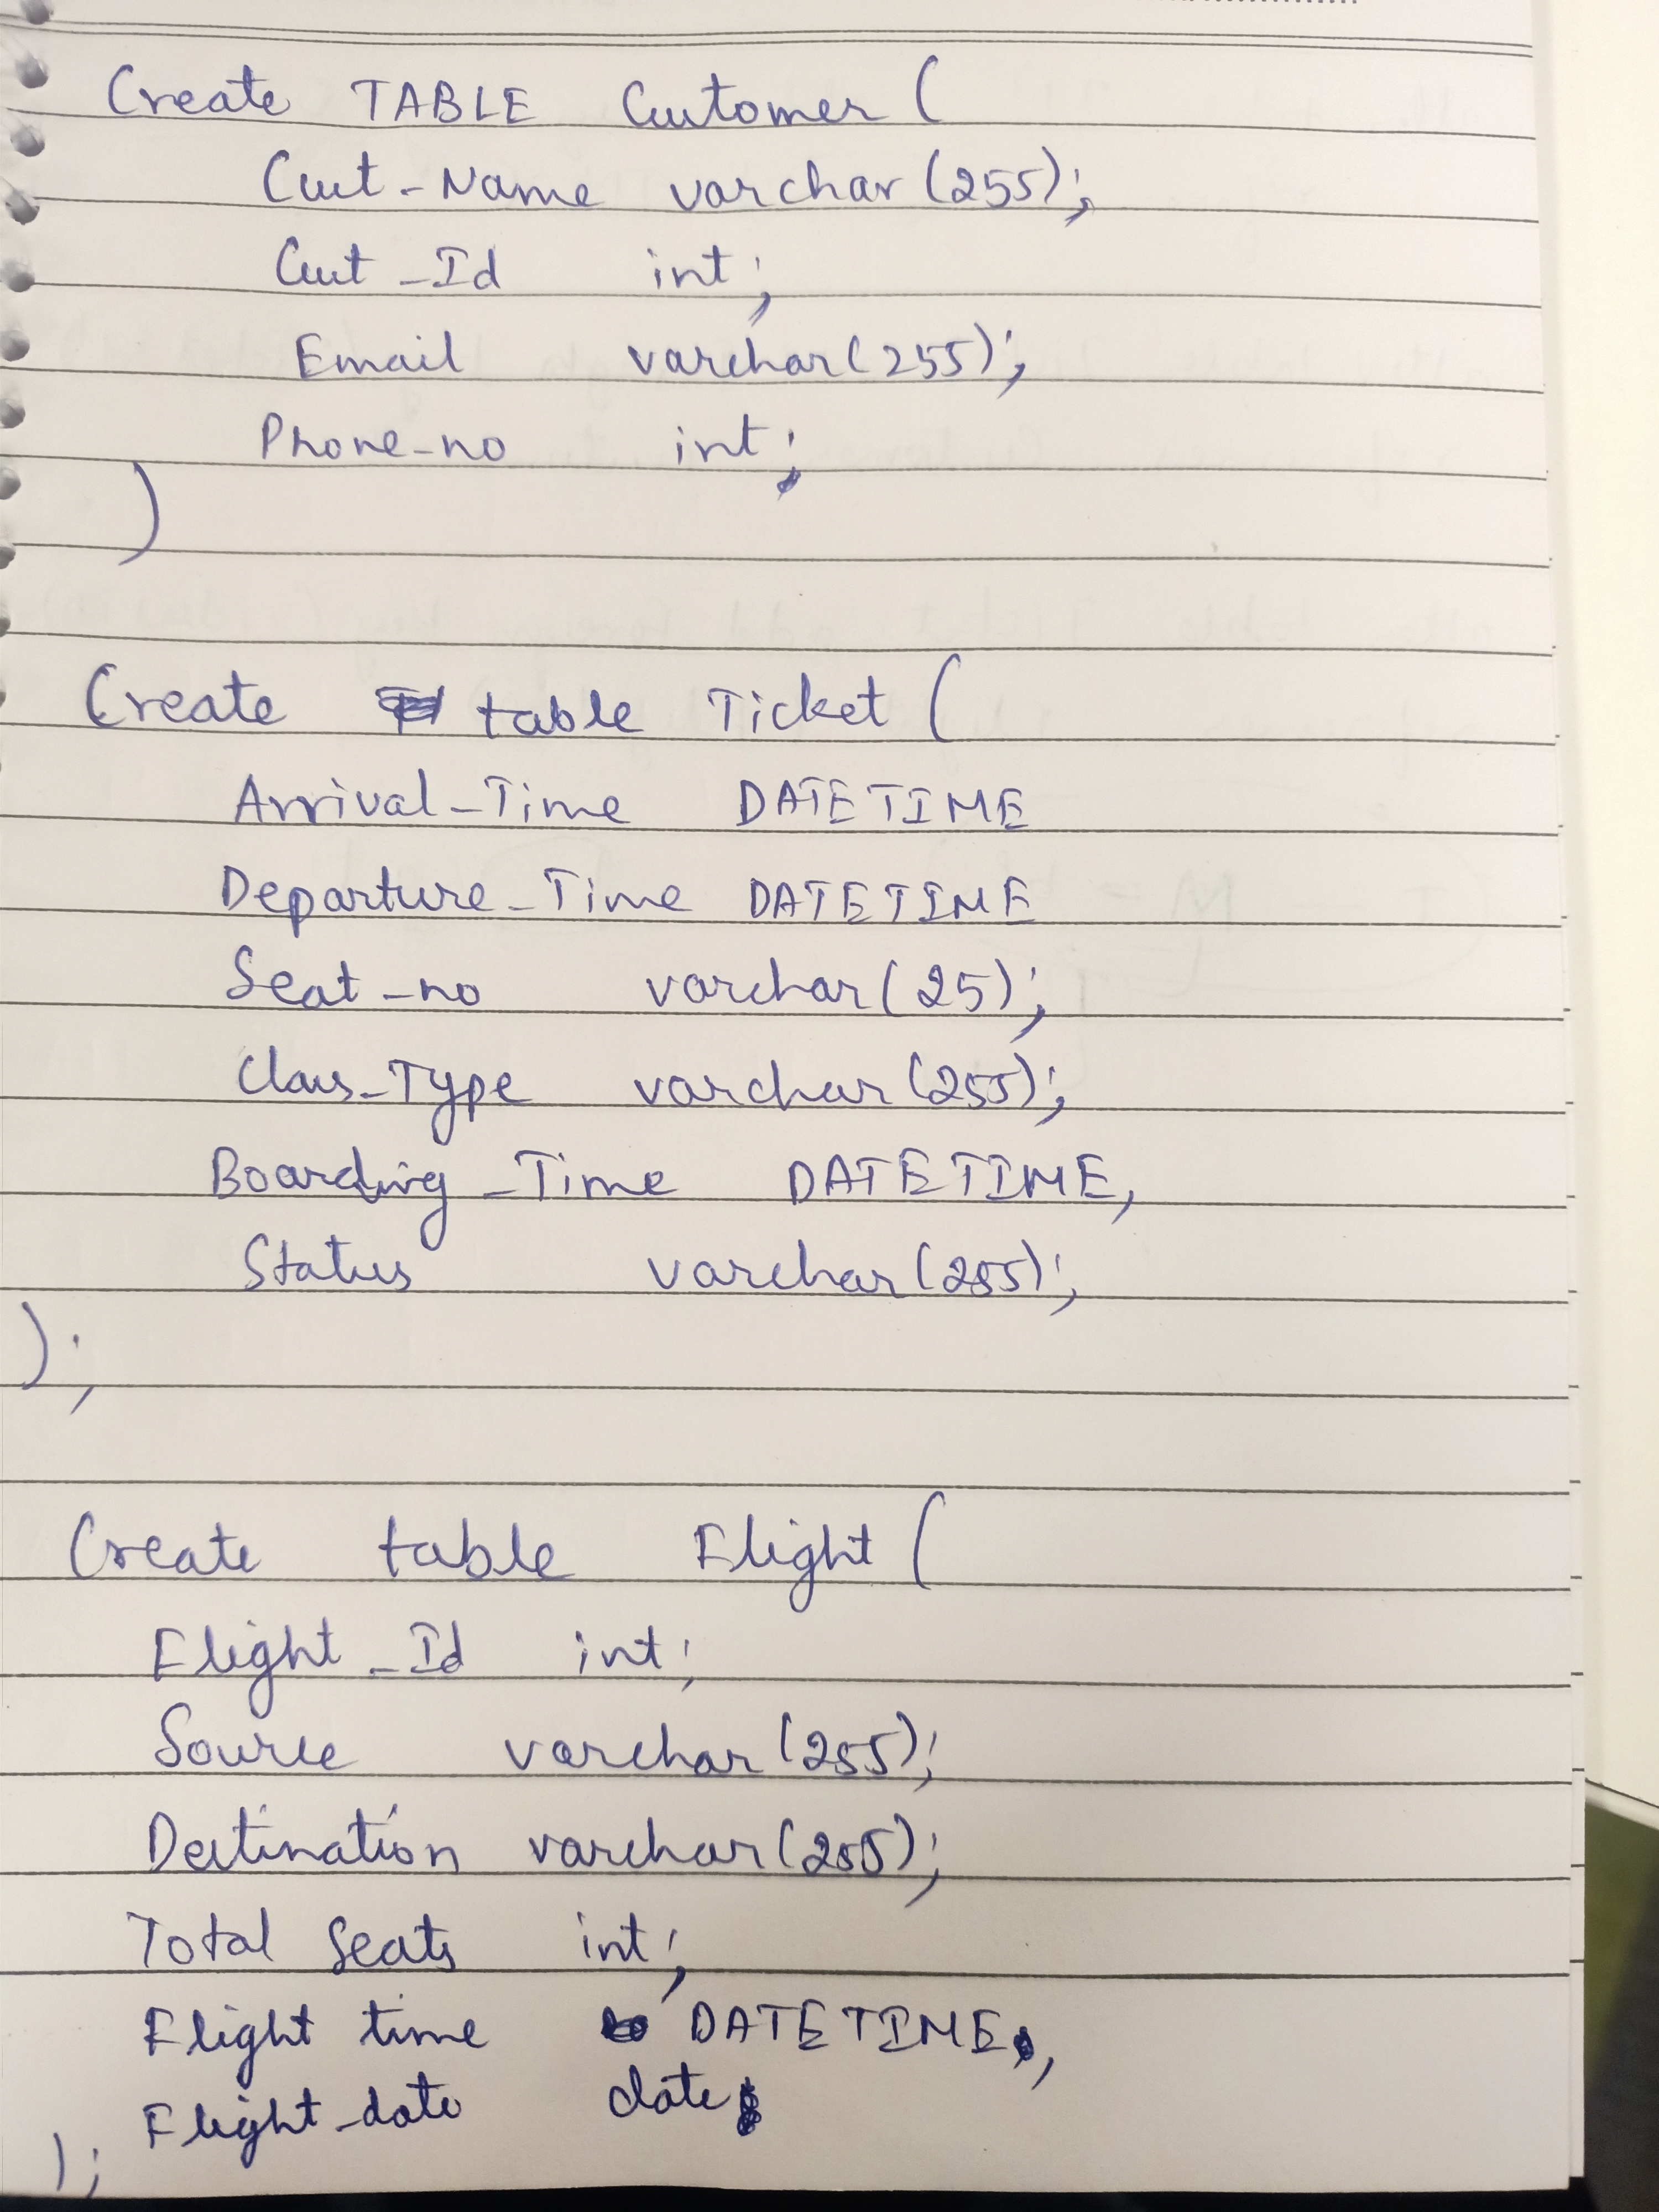 Create TABLE Customer (
Cust_Name varchar (255);
Cust_Id int;
Email varchar(255);
Phone_no int;
)
Create table Ticket (
Arrival_Time DATETIME
Departure_Time DATETIME
Seat_no varchar(25);
Class_Type varchar(255);
Boarding_Time DATETIME,
Status varchar(255);
);
Create table Flight (
Flight_Id int;
Source varchar(255);
Destination varchar(255);
Total Seats int;
Flight time DATETIME,
Flight_date date
);